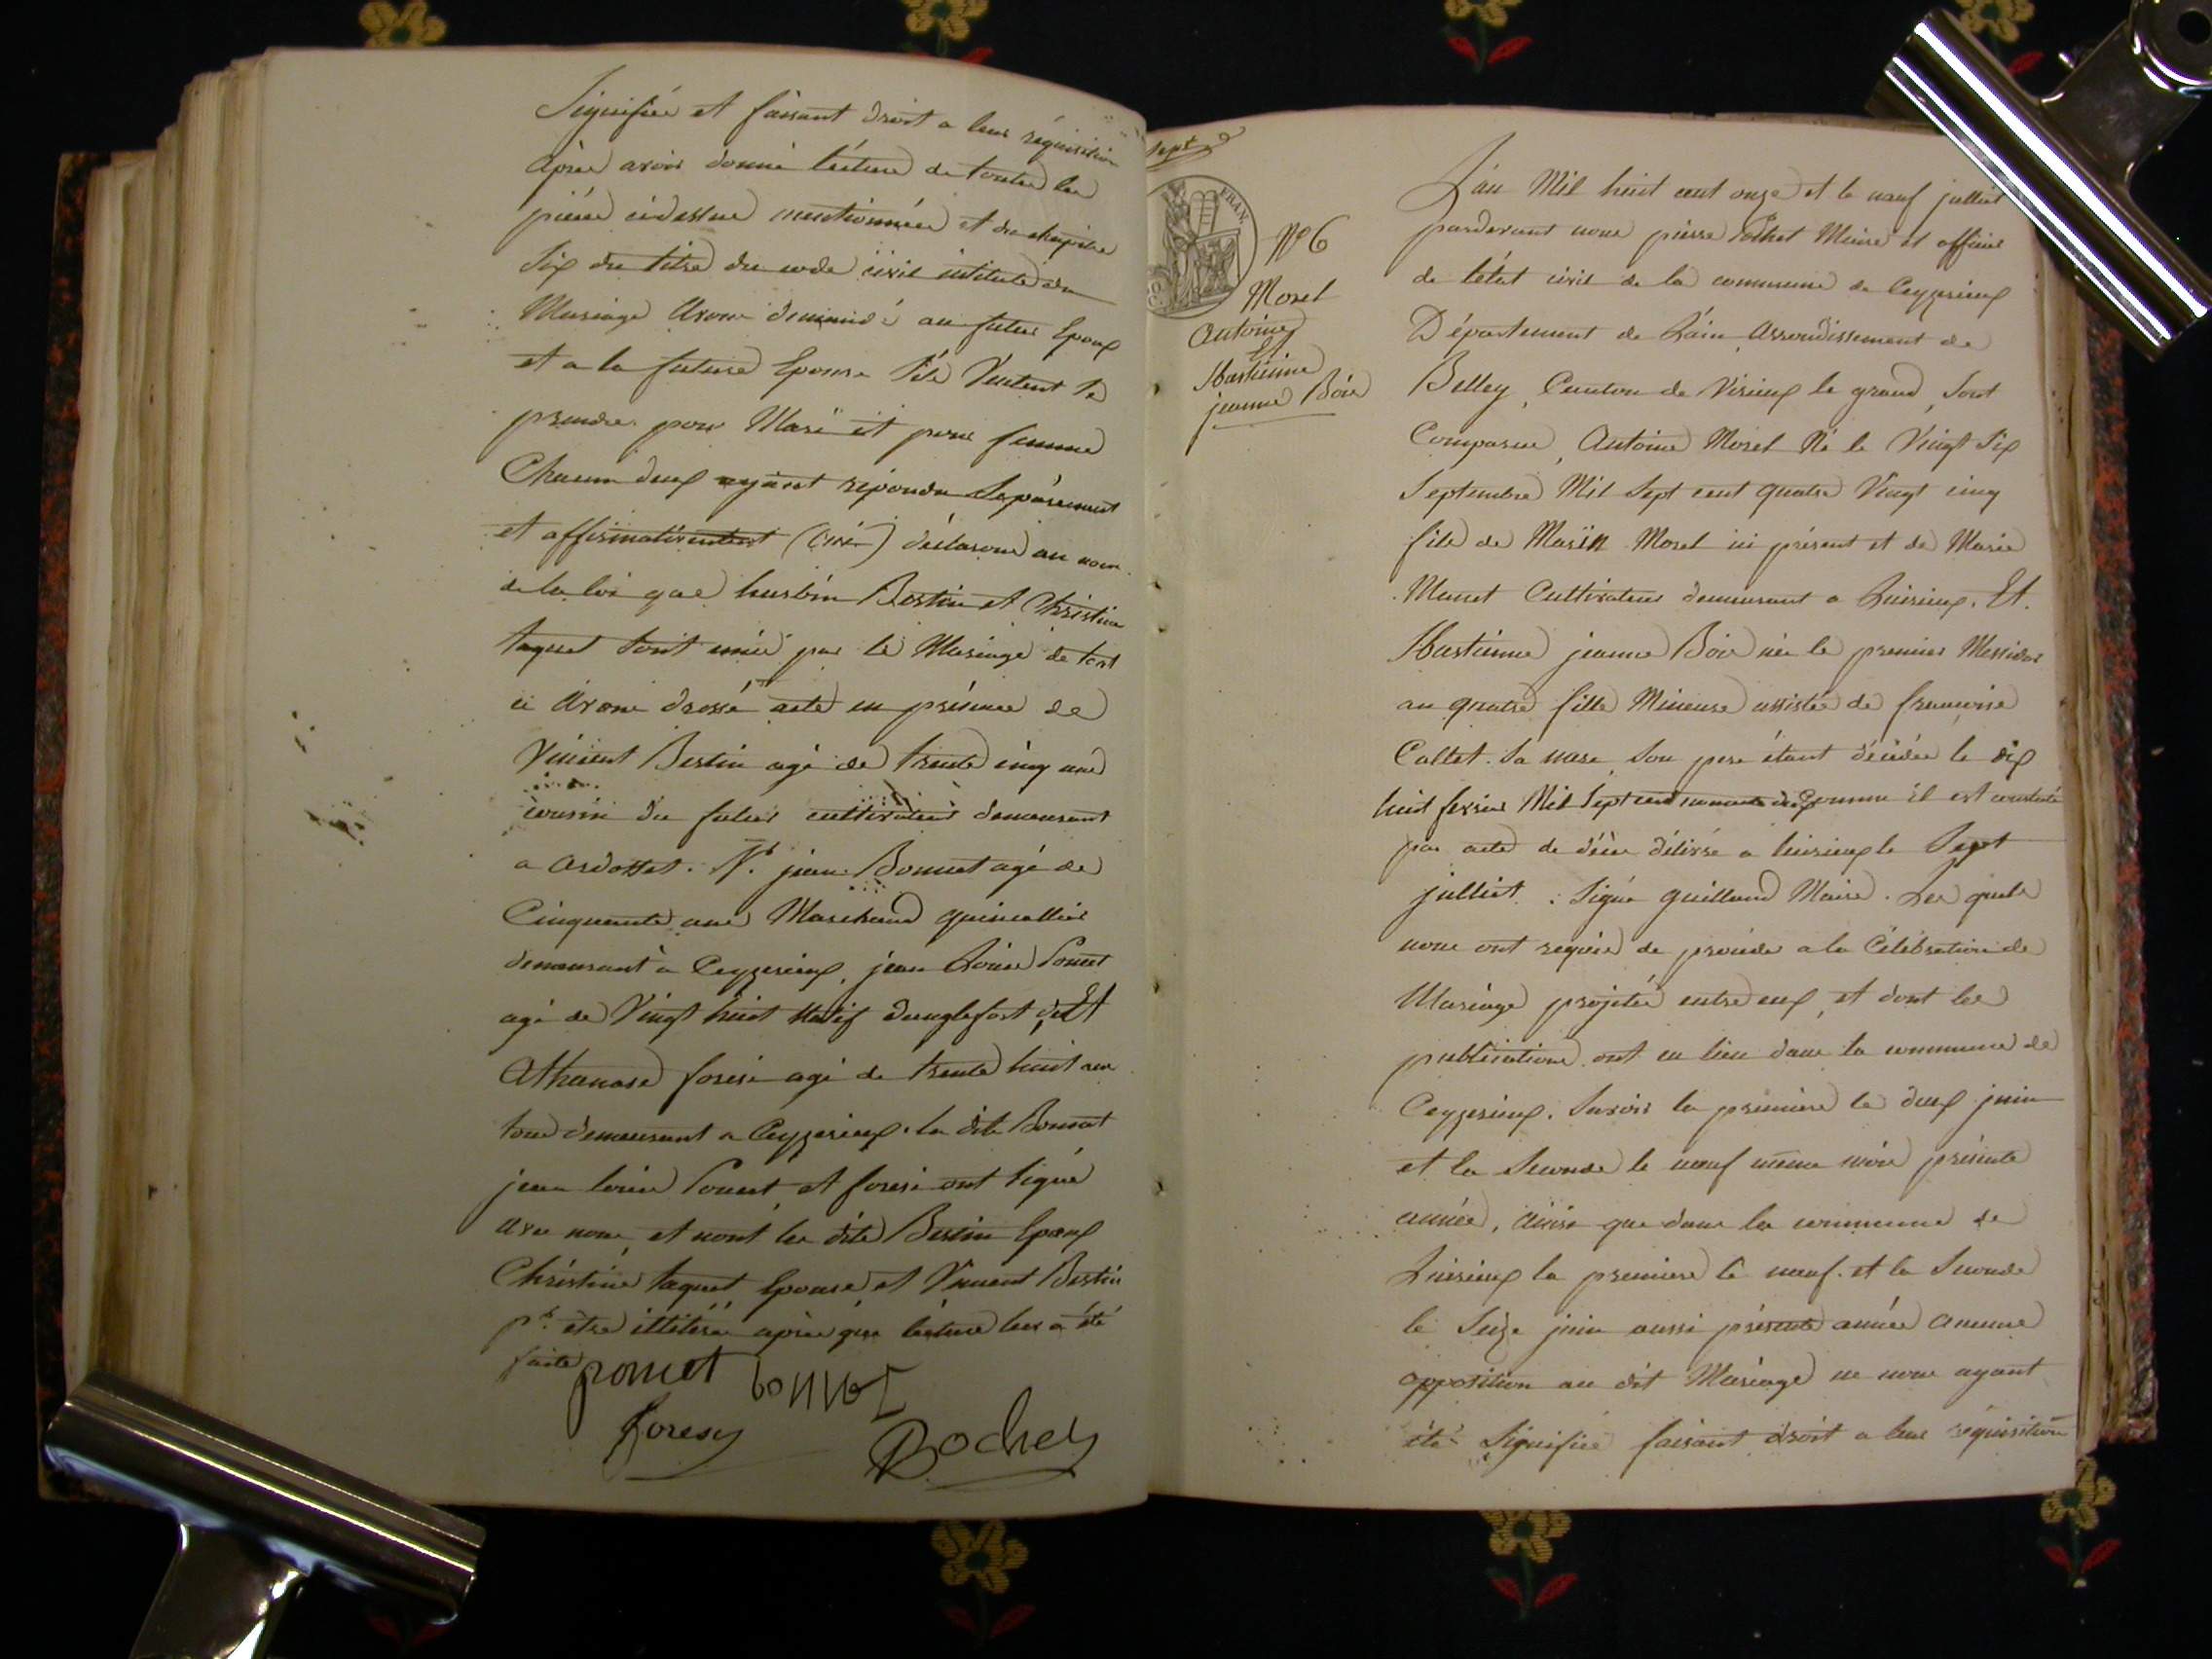 Signifiée et faisant droit a leur réquisition
après avoir donné lécture de toutes les
piéces cidessus mentionnées et du chapitre
Six du titre du code civil intitulé du
Mariage Avons demandé au futur Epoux
et a la future Epouse s'ils Veulent se
prendre pour Mari et pour femme
Chacun deux ayant répondu Séparément
et affirmativement déclarons au nom
de la loi que Bertin et Christine
taquet sont unis par le Mariage de tout
ci Avons dressé acte en présence de
Vincent Bertin agé de trente cinq ans
cousin du futur cultivateur demeurant
a ardosset. jean Bonnet agé de
Cinquante ans Marchand quincallier
demeurant à Ceyzerieux, jean Louis Poncet
agé de Vingt huit Natif danglefort Et
Athanase foresi agé de trente huit ans
tous demeurant a Ceyzerieux. les dits Bonnet
jean louis Poncet et foresi ont signé
avec nous, et nont les dits Bertin Epoux
Christine taquet Epouse et Vincent Bertin
pr. être illétérés après que lécture leur a été
faite
poncet
bonnet
foresy
Pochet
sept
FRAN.
No 6
Morel
Antoine
Et
jeanne Bovis
L'an Mil huit cent onze et le neuf julliet
pardevant nous pierre Pochet Maire et officier
de létat civil de la commune de Ceyzerieux
Département de L'ain, Arrondissement de
Belley, Canton de Virieux le grand, Sont
Comparus, Antoine Morel Né le Vingt Six
Septembre Mil Sept cent quatre Vingt cinq
fils de Marin Morel ici présent et de Marie
Cultivateur demeurant a Et.
jeanne née le premier Messidor
an quatre fille Mineure assistée de francoise
Callet. Sa mere, Son pere étant décédée le dix
huit fevrier Mil Sept cent comme il est constaté
par acte de décès délivré a le Sept
julliet. Signé guilland Maire. Les quels
nous ont requis de procéder a la Célébration de
Mariage projetée entre eux, et dont les
publications ont eu lieu dans la commune de
Ceyzerieux. Savoir la première le deux juin
et la Seconde le neuf même mois présente
année, ainsi que dans la commune de
la premiere le neuf. et la Seconde
le Seize juin aussi présente année aucune
opposition au dit Mariage ne nous ayant
été Signifiée faisant droit a leur réquisition